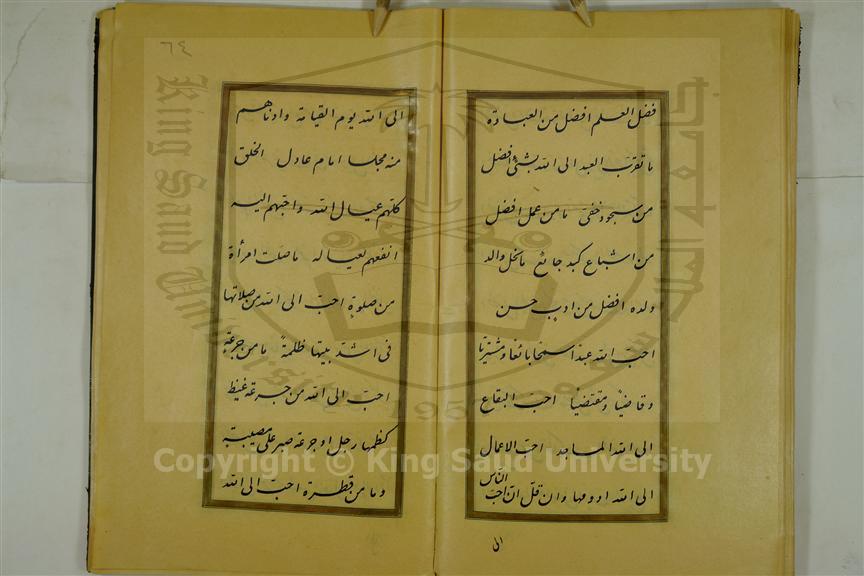 فضل العلم افضل من العبادة
ما تقرب العبد الى الله بشئ افضل
من سجود خفى ما من عمل افضل
من اشباع كبد جائع ما نحل والد
ولده افضل من ادب حسن
احب الله عبدا سمحا بائعا و مشتريا
وقاضيا ومقتضيا احب البقاع
الى الله المساجد احب الاعمال
الى الله ادومها وان قل ان احب الناس
الى
٦٤
الى الله يوم القيامة وادناهم
منه مجلسا امام عادل الخلق
كلهم عيال الله واحبهم اليه
انفعهم لعياله ما صلت امرأة
من صلوة احب الى الله من صلاتها
فى اشد بيتها ظلمة ما من جرعة
احب الى الله من جرعة غيظ
كظمها رجل او جرعة صبر على مصيبة
وما من قطرة احب الى الله
جامعة الملك سعود
King Saud University
1957
Copyright © King Saud University